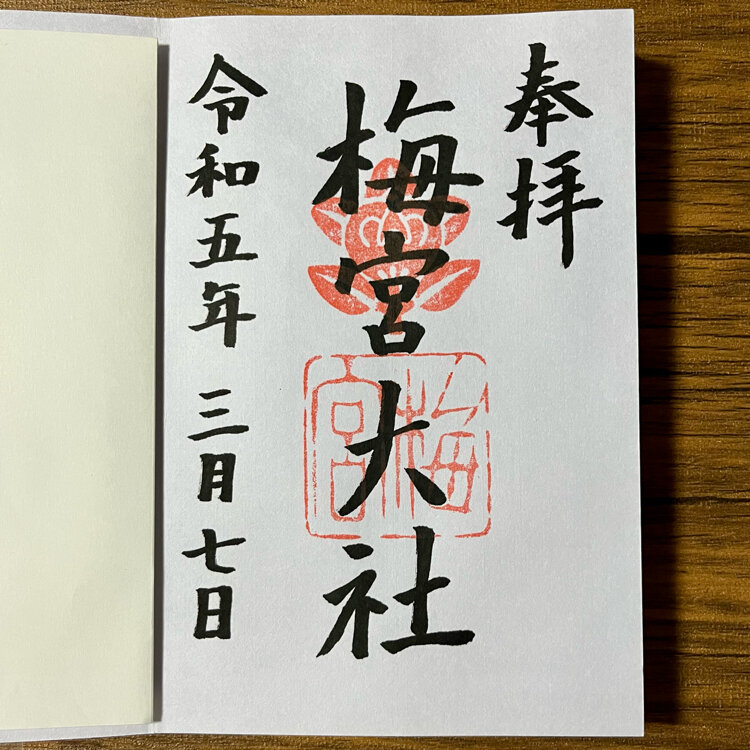 奉拝
梅宮大社
梅宮
令和五年 三月七日